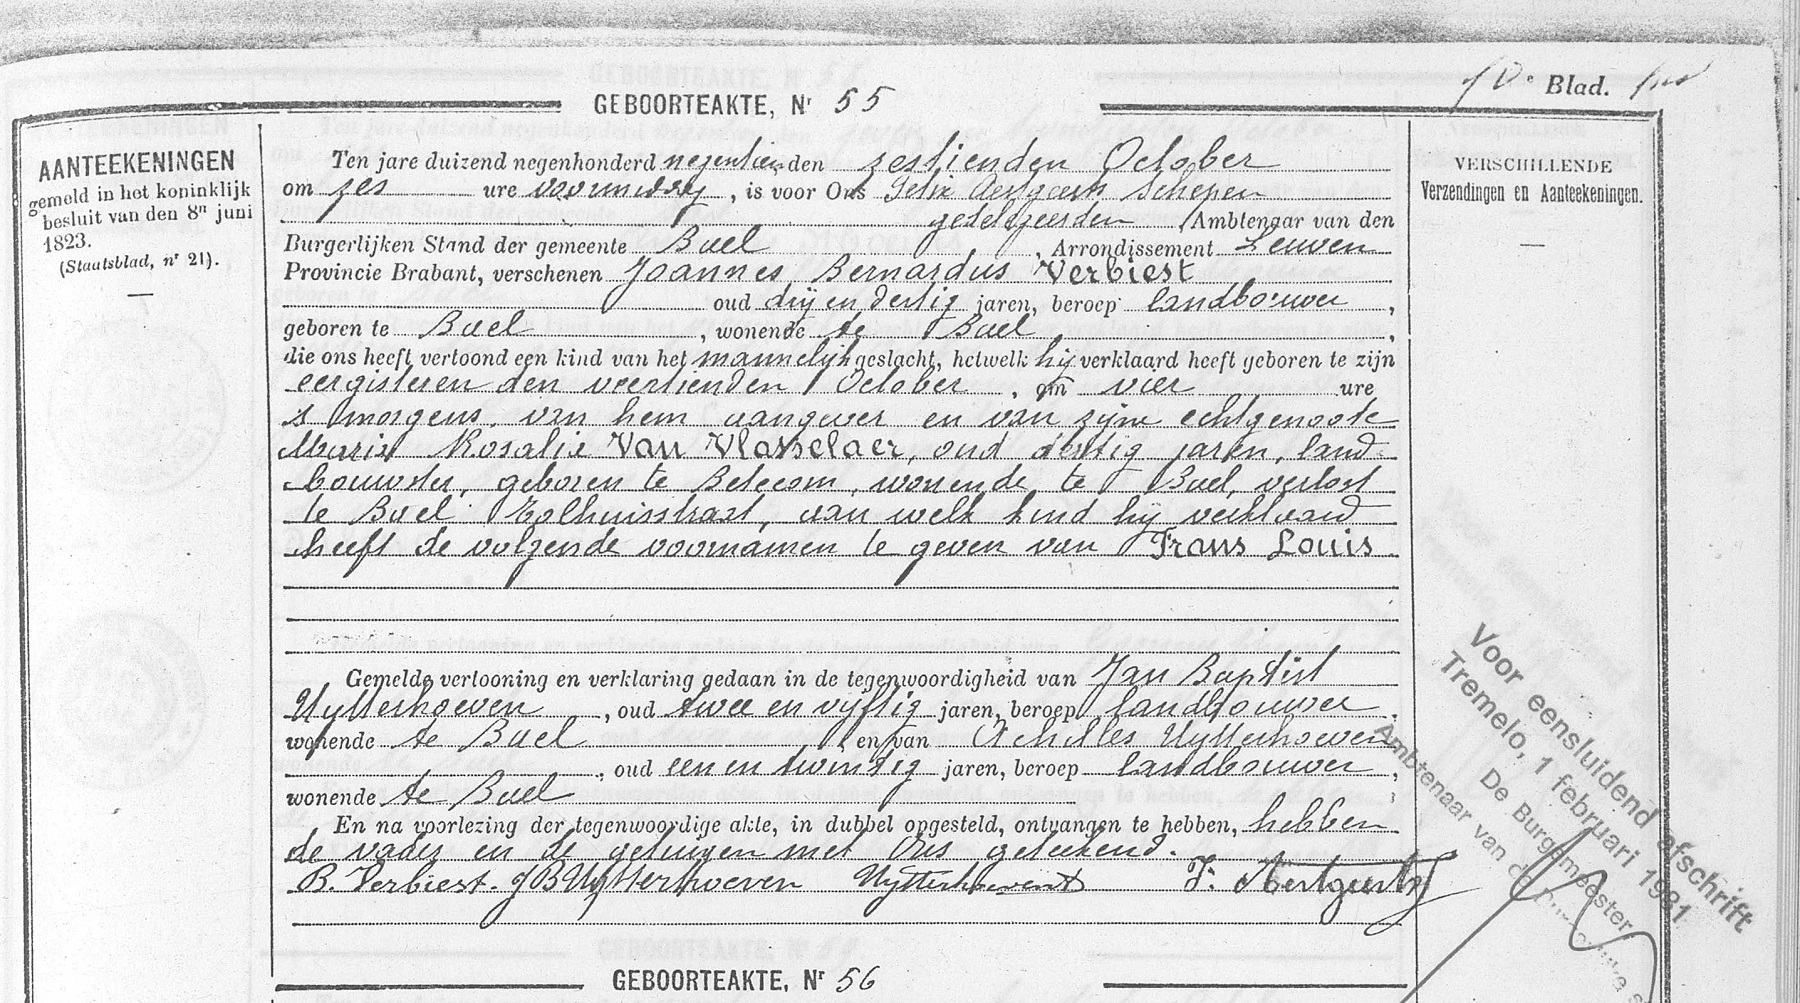 10e Blad.
GEBOORTEAKTE, Nr 55
AANTEEKENINGEN
gemeld in het koninklijk
besluit van den 8n juni
1823.
(Staatsblad, nr 21).
Ten jare duizend negenhonderd negentien den zestienden October
om zes ure voormiddag, is voor Ons Felix Aertgeerts Schepen
gedelegeerden Ambtenaar van den
Burgerlijken Stand der gemeente Bael, Arrondissement Leuven
Provincie Brabant, verschenen Joannes Bernardus Verbiest
oud drij en dertig jaren, beroep landbouwer,
geboren te Bael, wonende te Bael,
die ons heeft vertoond een kind van het mannelijk geslacht, hetwelk hij verklaard heeft geboren te zijn
eergisteren den veertienden October, om vier ure
's morgens, van hem aangever en van zijne echtgenoote
Maria Rosalia Van Vlasselaer, oud dertig jaren, land-
bouwster, geboren te Betecom, wonende te Bael, verlost
te Bael Tolhuisstraat, aan welk kind hij verklaard
heeft de volgende voornamen te geven van Frans Louis
Gemelde vertooning en verklaring gedaan in de tegenwoordigheid van Jan Baptist
Uytterhoeven, oud twee en vijftig jaren, beroep landbouwer,
wonende te Bael en van Achilles Uytterhoeven
, oud een en twintig jaren, beroep landbouwer,
wonende te Bael
En na voorlezing der tegenwoordige akte, in dubbel opgesteld, ontvangen te hebben, hebben
de vader en de getuigen met Ons geteekend.
B. Verbiest. JB Uytterhoeven Uytterhoeven A F. Aertgeerts
GEBOORTEAKTE, Nr 56
VERSCHILLENDE
Verzendingen en Aanteekeningen.
Voor eensluidend afschrift
Tremelo, 1 februari 1981
De Burgemeester
Ambtenaar van de